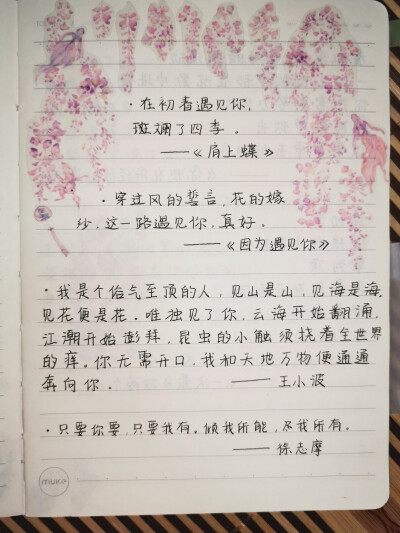 ·在初春遇见你,
斑斓了四季。
——《肩上蝶》
·穿过风的誓言,花的嫁
纱,这一路遇见你,真好。
——《因为遇见你》
·我是个俗气至顶的人,见山是山,见海是海,
见花便是花。唯独见了你,云海开始翻涌,
江潮开始澎拜,昆虫的小触须挠着全世界
的痒。你无需开口,我和天地万物便通通
奔向你。——王小波
·只要你要,只要我有。倾我所能,尽我所有。
——徐志摩
muko